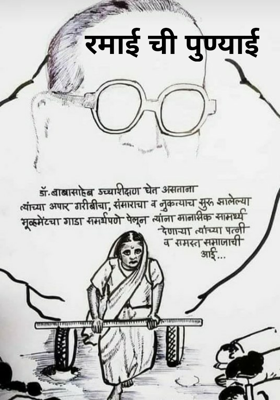 रमाई ची पुण्याई
डॉ. बाबासाहेब उच्चशिक्षण घेत असताना
त्यांच्या अपार गरीबीचा, संसाराचा व नुकत्याच सुरु झालेल्या
मूव्हमेंटचा गाडा समर्थपणे पेलून त्यांना मानसिक सामर्थ्य
देणाऱ्या त्यांच्या पत्नी
व समस्त समाजाची
आई...